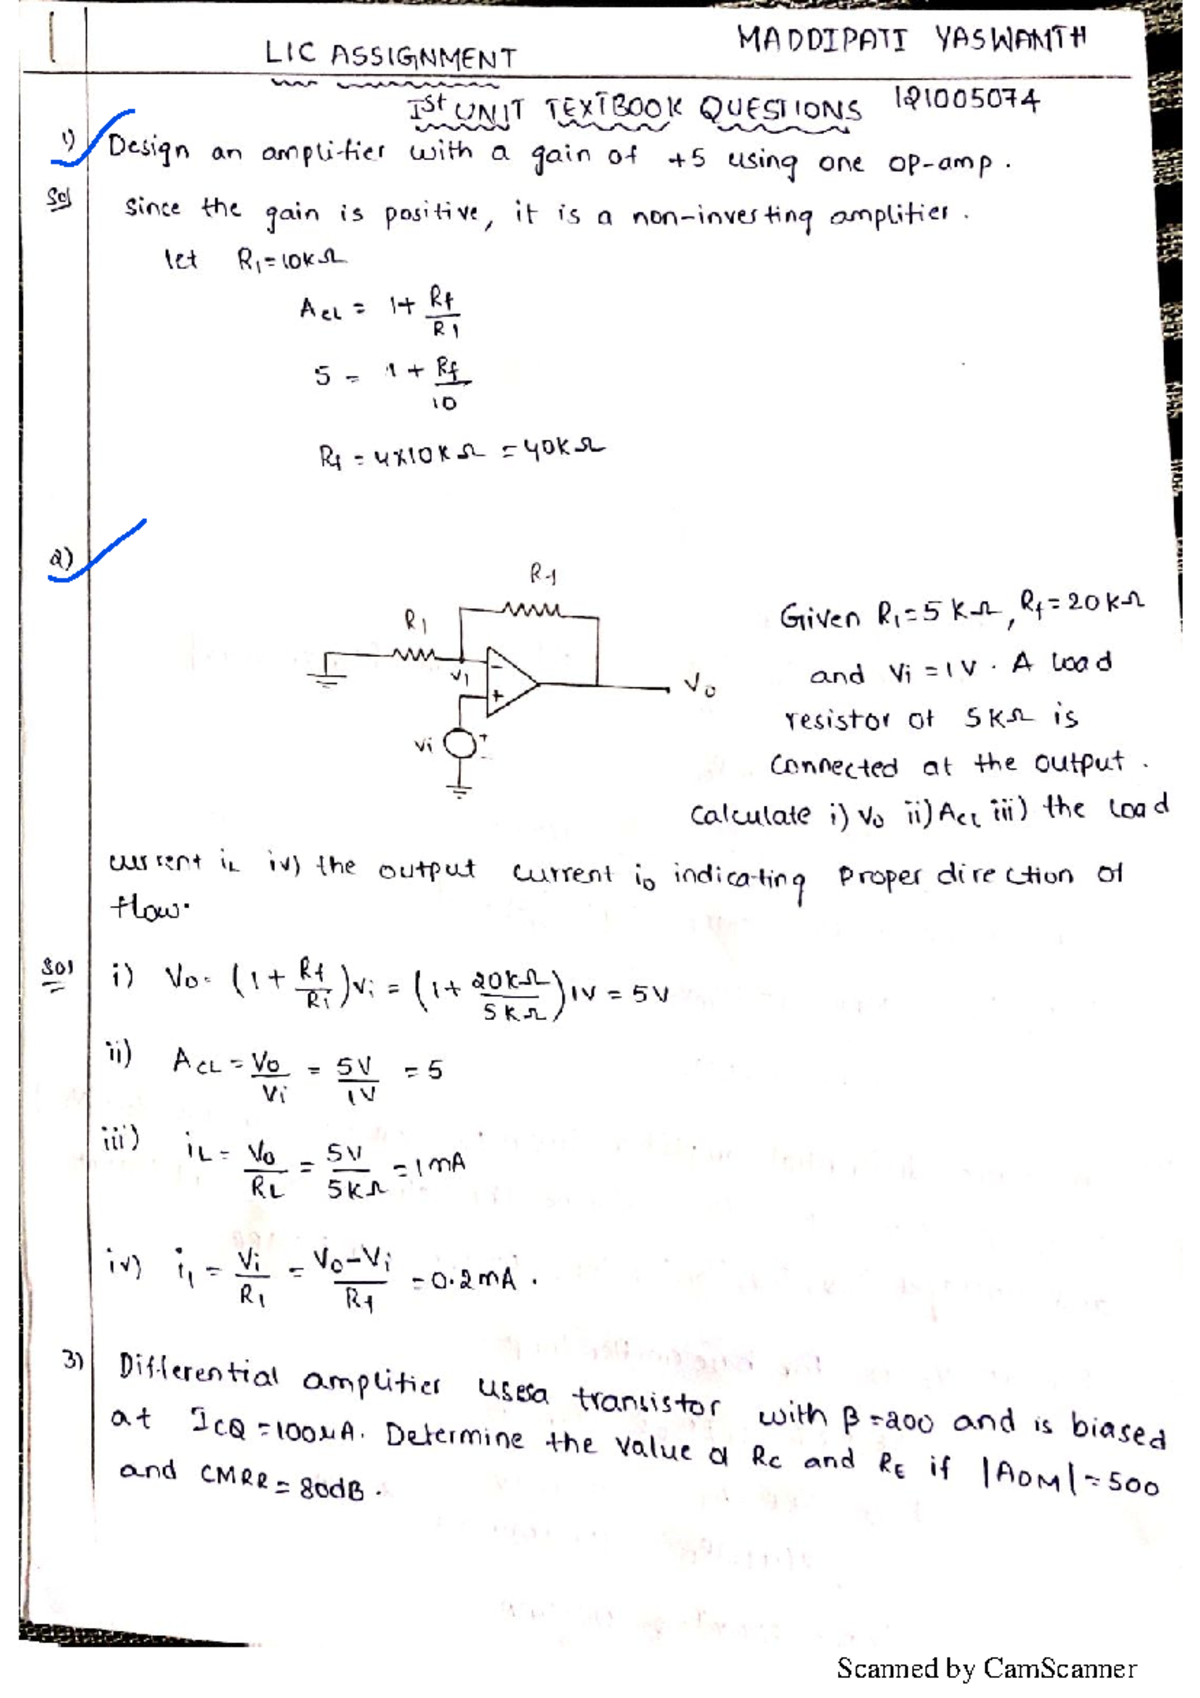 1
LIC ASSIGNMENT
MADDIPATI YASWANTH
Ist UNIT TEXTBOOK QUESTIONS
121005074
1) Design an amplifier with a gain of +5 using one op-amp.
Sol since the gain is positive, it is a non-inverting amplifier.
let R1=10KΩ
ACL = 1+ Rf/R1
5 = 1+ Rf/10
Rf = 4×10KΩ = 40KΩ
2)
Rf
R1
V1
-
+
Vo
Vi
+
-
Given R1=5KΩ, Rf=20KΩ
and Vi =1V. A load
resistor of 5KΩ is
connected at the output.
calculate i) Vo ii) ACL iii) the load
current iL iv) the output current io indicating proper direction of
flow.
Sol i) Vo= (1+ Rf/Ri)Vi = (1+ 20KΩ/5KΩ)1V = 5V
ii) ACL = Vo/Vi = 5V/1V = 5
iii) iL = Vo/RL = 5V/5KΩ = 1mA
iv) i1 = Vi/R1 = Vo-Vi/Rf = 0.2mA.
3) Differential amplifier usesa transistor with β=200 and is biased
at ICQ =100μA. Determine the value of RC and RE if |ADM|=500
and CMRR = 80dB.
Scanned by CamScanner